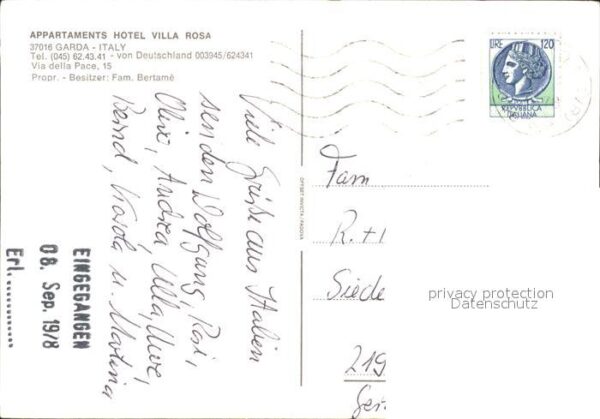 APPARTAMENTS HOTEL VILLA ROSA
37016 GARDA - ITALY
Tel. (045) 62.43.41 - von Deutschland 003945/624341
Via della Pace, 15
Propr. - Besitzer: Fam. Bertamè
Viele Grüße aus Italien
senden Wolfgang, Rosi,
Oliver, Andrea, Ulla, Uwe,
Bernd, Karola u. Martina
EINGEGANGEN
08. Sep. 1978
Erl............
OFFSET INVICTA / PADOVA
LIRE 120
REPVBBLICA
ITALIANA
Fam
R. + I
Siede
219
Ger.
privacy protection
Datenschutz